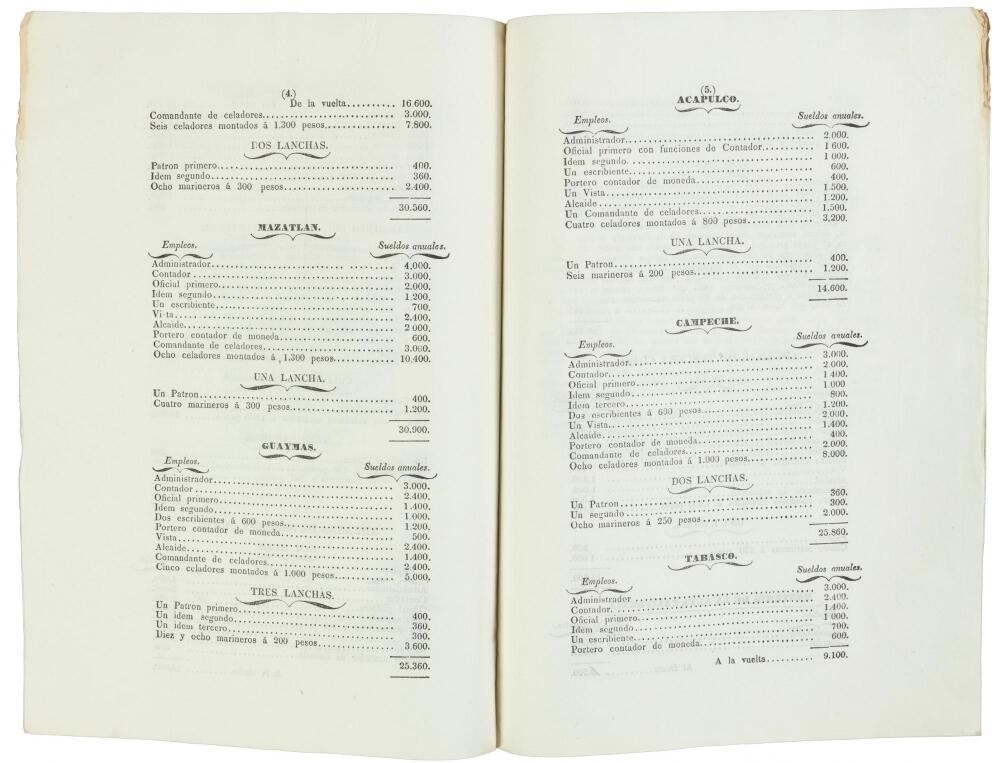 (4.)
De la vuelta.......... 16.600.
Comandante de celadores.......... 3.000.
Seis celadores montados á 1.300 pesos.......... 7.800.
DOS LANCHAS.
Patron primero.......... 400.
Idem segundo.......... 360.
Ocho marineros á 300 pesos.......... 2.400.
30.560.
MAZATLAN.
Empleos. Sueldos anuales.
Administrador.......... 4.000.
Contador.......... 3.000.
Oficial primero.......... 2.000.
Idem segundo.......... 1.200.
Un escribiente.......... 700.
Vi ta.......... 2.400.
Alcaide.......... 2 000.
Portero contador de moneda.......... 600.
Comandante de celadores.......... 3.000.
Ocho celadores montados á 1.300 pesos.......... 10.400.
UNA LANCHA.
Un Patron.......... 400.
Cuatro marineros á 300 pesos.......... 1.200.
30.900.
GUAYMAS.
Empleos. Sueldos anuales.
Administrador.......... 3.000.
Contador.......... 2.400.
Oficial primero.......... 1.400.
Idem segundo.......... 1.000.
Dos escribientes á 600 pesos.......... 1.200.
Portero contador de moneda.......... 500.
Vista.......... 2.400.
Alcaide.......... 1.400.
Comandante de celadores.......... 2.400.
Cinco celadores montados á 1.000 pesos.......... 5.000.
TRES LANCHAS.
Un Patron primero.......... 400.
Un idem segundo.......... 360.
Un idem tercero.......... 300.
Diez y ocho marineros á 200 pesos.......... 3.600.
25.360.
(5.)
ACAPULCO.
Empleos. Sueldos anuales.
Administrador.......... 2.000.
Oficial primero con funciones de Contador.......... 1 600.
Idem segundo.......... 1 000.
Un escribiente.......... 600.
Portero contador de moneda.......... 400.
Un Vista.......... 1.500.
Alcaide.......... 1.200.
Un Comandante de celadores.......... 1.500.
Cuatro celadores montados á 800 pesos.......... 3,200.
UNA LANCHA.
Un Patron.......... 400.
Seis marineros á 200 pesos.......... 1.200.
14.600.
CAMPECHE.
Empleos. Sueldos anuales.
Administrador.......... 3.000.
Contador.......... 2.000.
Oficial primero.......... 1 400.
Idem segundo.......... 1.000
Idem tercero.......... 800.
Dos escribientes á 600 pesos.......... 1.200.
Un Vista.......... 2 000.
Alcaide.......... 1.400.
Portero contador de moneda.......... 400.
Comandante de celadores.......... 2.000.
Ocho celadores montados á 1.000 pesos.......... 8.000.
DOS LANCHAS.
Un Patron.......... 360.
Un segundo.......... 300.
Ocho marineros á 250 pesos.......... 2.000.
25.860.
TABASCO.
Empleos. Sueldos anuales.
Administrador.......... 3.000.
Contador.......... 2.400.
Oficial primero.......... 1.400.
Idem segundo.......... 1 000.
Un escribiente.......... 700.
Portero contador de moneda.......... 600.
A la vuelta.......... 9.100.